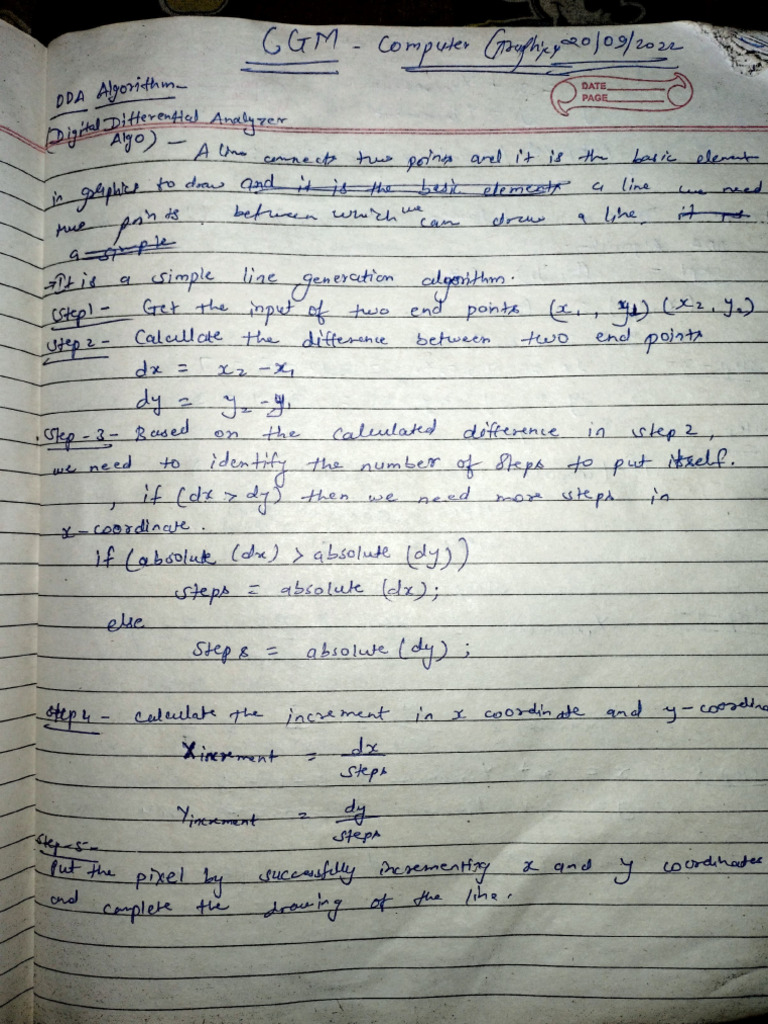 CGM - Computer Graphics 20/09/2022
DATE
PAGE
DDA Algorithm -
(Digital Differential Analyzer
Algo) - A line connects two points and it is the basic element
in graphics to draw and it is the basic elements a line we need
two points. between which we can draw a line. it is
a simple
→ It is a simple line generation algorithm.
Step1 - Get the input of two end points (x1, y1) (x2, y2)
Step 2 - Calculate the difference between two end points
dx = x2 - x1
dy = y2 - y1
Step - 3 - Based on the calculated difference in step 2,
we need to identify the number of steps to put itself.
, if (dx > dy) then we need more steps in
x-coordinate.
if (absolute (dx) > absolute (dy))
steps = absolute (dx);
else
Steps = absolute (dy);
Step 4 - calculate the increment in x coordinate and y-coordina
Xincrement = dx
steps
Yincrement = dy
steps
Step-5-
Put the pixel by successfully incrementing x and y coordinates
and complete the drawing of the line.